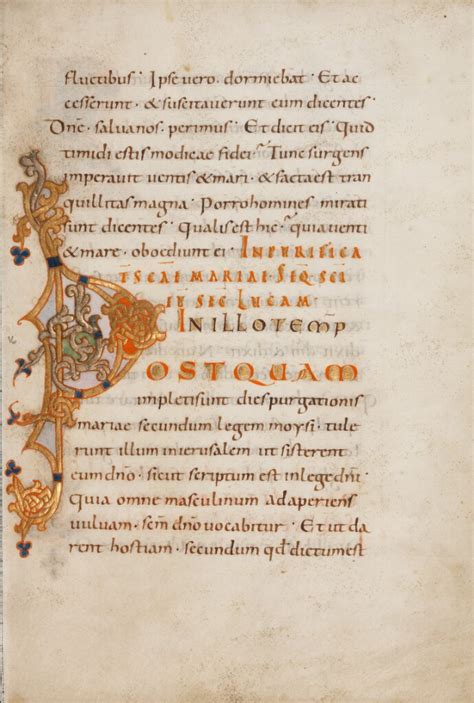 fluctibus · Ipse vero · dormiebat · Et ac
cesserunt · & suscitaverunt eum dicentes ·
Dne · salvanos · perimus · Et dicit eis · Quid
timidi estis modicae fidei · Tunc surgens
imperavit ventis & mari · & facta est tran
quillitas magna · Porro homines mirati
sunt dicentes · Qualis est hic · quia venti
& mare · oboediunt ei · IN PURIFICA
SCAE MARIAE · SEQ SCI
SEC LUCAM ·
IN ILLO TEMP
POSTQUAM
impleti sunt dies purgationis
mariae secundum legem moysi · tule
runt illum in ierusalem ut sisterent
eum dno · sicut scriptum est in lege dni
quia omne masculinum adaperiens
vulvam · scm dno vocabitur · Et ut da
rent hostiam · secundum qd dictum est